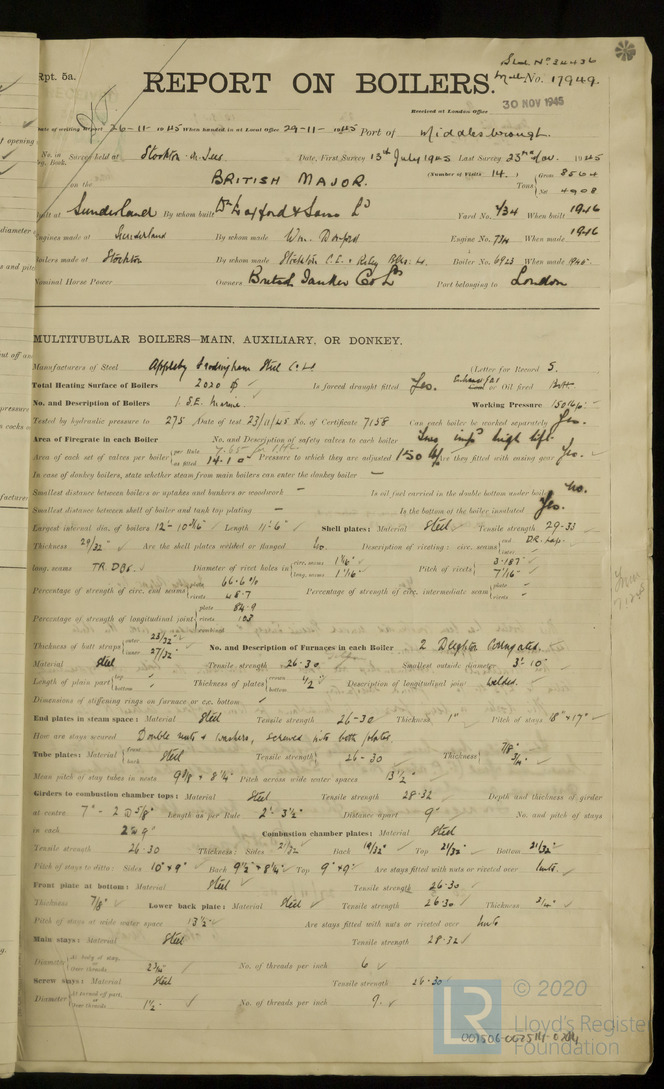 Rpt. 5a.
REPORT ON BOILERS.
No. 17949.
Received at London Office 30 NOV 1945
Date of writing Report 26-11-1945 When handed in at Local Office 29-11-1945 Port of Middlesbrough.
No. in Reg. Book. Survey held at Stockton-on-Tees Date, First Survey 13th July 1945 Last Survey 23rd Nov. 1945
on the BRITISH MAJOR. (Number of Visits 14.) Tons Gross 8564 Net 4908
Built at Sunderland By whom built Wm Doxford & Sons Ld Yard No. 734 When built 1946
Engines made at Sunderland By whom made Wm. Doxford Engine No. 734 When made 1946
Boilers made at Stockton By whom made Stockton C.E. & Riley Blrs: Ld. Boiler No. 6923 When made 1945.
Nominal Horse Power Owners British Tanker Co Ld Port belonging to London
MULTITUBULAR BOILERS—MAIN, AUXILIARY, OR DONKEY.
Manufacturers of Steel Appleby Frodingham Steel Co Ld (Letter for Record S.
Total Heating Surface of Boilers 2020 Is forced draught fitted Yes. or Oil fired Both
No. and Description of Boilers 1 S.E. Marine Working Pressure 150 lb.
Tested by hydraulic pressure to 275 Date of test 23/11/45 No. of Certificate 7158 Can each boiler be worked separately Yes.
Area of Firegrate in each Boiler No. and Description of safety valves to each boiler high lift
Area of each set of valves per boiler per Rule as fitted 14.10 Pressure to which they are adjusted 150 lb. Are they fitted with easing gear Yes.
In case of donkey boilers, state whether steam from main boilers can enter the donkey boiler —
Smallest distance between boilers or uptakes and bunkers or woodwork — Is oil fuel carried in the double bottom under boilers No.
Smallest distance between shell of boiler and tank top plating — Is the bottom of the boiler insulated Yes.
Largest internal dia. of boilers 12'-10 3/16" Length 11'-6" Shell plates: Material Steel Tensile strength 29-33
Thickness 29/32" Are the shell plates welded or flanged No. Description of riveting: circ. seams end DR. Lap. inter.
long. seams TR. DBS. Diameter of rivet holes in circ. seams 1 1/16" long. seams 1 1/16" Pitch of rivets 3.187" 7 1/16"
Percentage of strength of circ. end seams plate 66.6% rivets 45.7 Percentage of strength of circ. intermediate seam plate rivets
Percentage of strength of longitudinal joint plate 84.9 rivets 103 combined
Thickness of butt straps outer 23/32" inner 27/32" No. and Description of Furnaces in each Boiler 2 Deighton Corrugated.
Material Steel Tensile strength 26-30 Smallest outside diameter 3'-10"
Length of plain part top bottom Thickness of plates crown bottom 1/2" Description of longitudinal joint welded.
Dimensions of stiffening rings on furnace or c.c. bottom
End plates in steam space: Material Steel Tensile strength 26-30 Thickness 1" Pitch of stays 18" x 17"
How are stays secured Double nuts & washers, screwed into both plates
Tube plates: Material front back Steel Tensile strength 26-30 Thickness 7/8" 3/4"
Mean pitch of stay tubes in nests 9 3/8 x 8 1/4" Pitch across wide water spaces 13 1/2"
Girders to combustion chamber tops: Material Steel Tensile strength 28-32 Depth and thickness of girder
at centre 7"-2 @ 5/8" Length as per Rule 2'-3 1/2" Distance apart 9" No. and pitch of stays
in each 2 @ 9" Combustion chamber plates: Material Steel
Tensile strength 26-30 Thickness: Sides 21/32 Back 19/32" Top 21/32" Bottom 21/32"
Pitch of stays to ditto: Sides 10" x 9" Back 9 1/2" x 8 1/4" Top 9" x 9" Are stays fitted with nuts or riveted over Nuts.
Front plate at bottom: Material Steel Tensile strength 26-30
Thickness 7/8" Lower back plate: Material Steel Tensile strength 26-30 Thickness 3/4"
Pitch of stays at wide water space 13 1/2" Are stays fitted with nuts or riveted over Nuts
Main stays: Material Steel Tensile strength 28-32
Diameter At body of stay, or Over threads 2 3/4" No. of threads per inch 6
Screw stays: Material Steel Tensile strength 26-30
Diameter At turned off part, or Over threads 1 1/2" No. of threads per inch 9.
© 2020
LR Lloyd's Register
Foundation